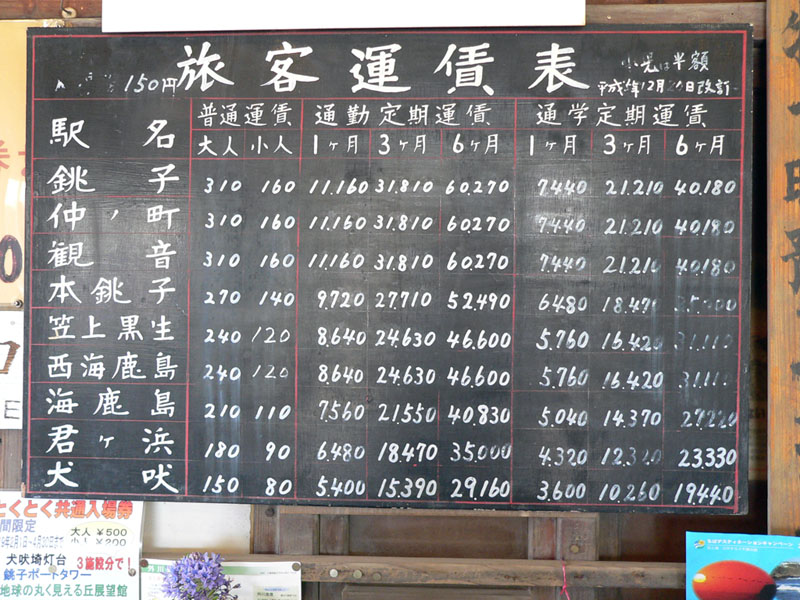 旅客運賃表
150円
小児は半額
平成 年12月 日改訂
駅名 普通運賃 通勤定期運賃 通学定期運賃
大人 小人 1ヶ月 3ヶ月 6ヶ月 1ヶ月 3ヶ月 6ヶ月
銚子 310 160 11.160 31.810 60.270 7.440 21.210 40.180
仲ノ町 310 160 11.160 31.810 60.270 7.440 21.210 40.180
観音 310 160 11.160 31.810 60.270 7.440 21.210 40.180
本銚子 270 140 9.720 27.710 52.490 6.480 18.470
笠上黒生 240 120 8.640 24.630 46.600 5.760 16.420 31.110
西海鹿島 240 120 8.640 24.630 46.600 5.760 16.420 31.110
海鹿島 210 110 7.560 21.550 40.830 5.040 14.370 27.220
君ヶ浜 180 90 6.480 18.470 35.000 4.320 23.330
犬吠 150 80 5.400 15.390 29.160 3.600 10.260 19.440
とくとく共通入場券
間限定
大人 ¥500
小人 ¥200
犬吠埼灯台
3施設分で!
銚子ポートタワー
地球の丸く見える丘展望館